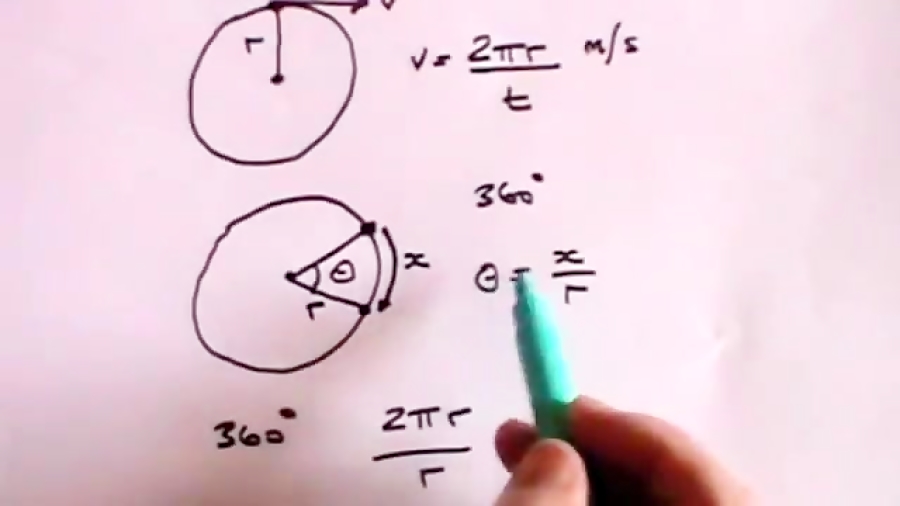 r v
v = 2πr / t m/s
360°
θ r x
θ = x / r
360° 2πr / r